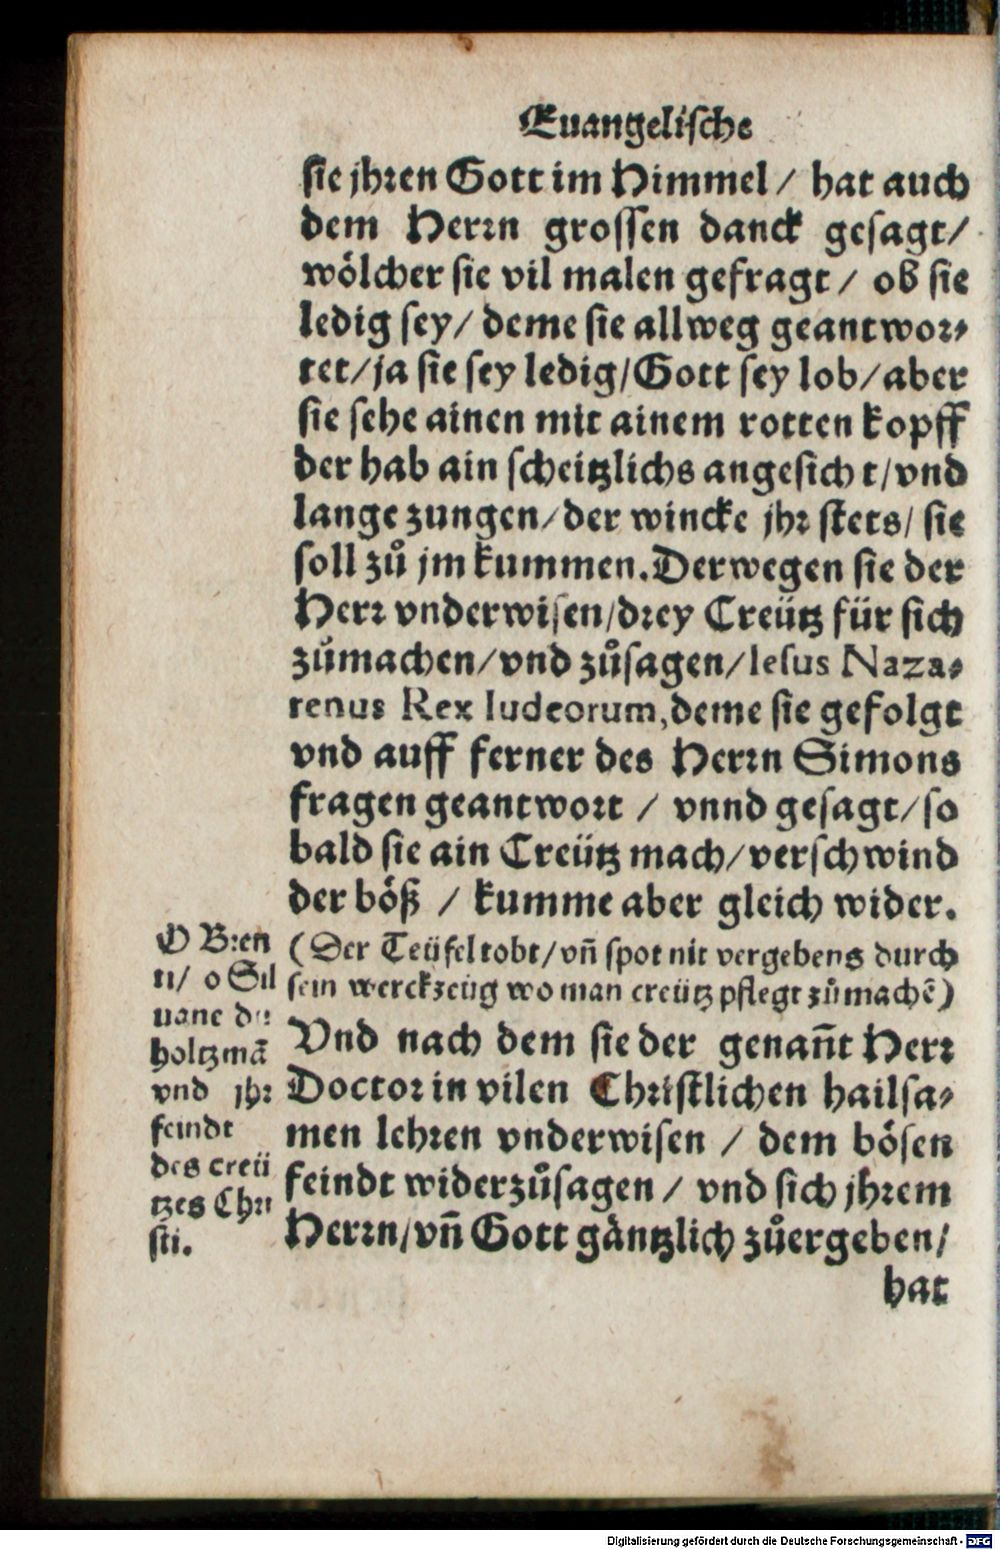 Euangelische
sie jhren Gott im Himmel / hat auch
dem Herrn grossen danck gesagt/
wölcher sie vil malen gefragt / ob sie
ledig sey/ deme sie allweg geantwor⸗
tet/ja sie sey ledig/Gott sey lob/aber
sie sehe ainen mit ainem rotten kopff
der hab ain scheitzlichs angesicht/vnd
lange zungen/der wincke jhr stets/ sie
soll zů jm kummen. Derwegen sie der
Herr vnderwisen/drey Creütz für sich
zůmachen/vnd zůsagen/Iesus Naza⸗
renus Rex Iudeorum,deme sie gefolgt
vnd auff ferner des Herrn Simons
fragen geantwort / vnnd gesagt/so
bald sie ain Creütz mach/verschwind
der böß / kumme aber gleich wider.
(Der Teüfel tobt/vñ spot nit vergebens durch
sein werckzeüg wo man creütz pflegt zůmachẽ)
Vnd nach dem sie der genañt Herr
Doctor in vilen Christlichen hailsa⸗
men lehren vnderwisen / dem bösen
feindt widerzůsagen / vnd sich jhrem
Herrn/vñ Gott gäntzlich zůergeben/
hat
O Bren
ti/ o Sil
uane du
holtzmã
vnd jhr
feindt
des creü
tzes Chri
sti.
Digitalisierung gefördert durch die Deutsche Forschungsgemeinschaft - DFG